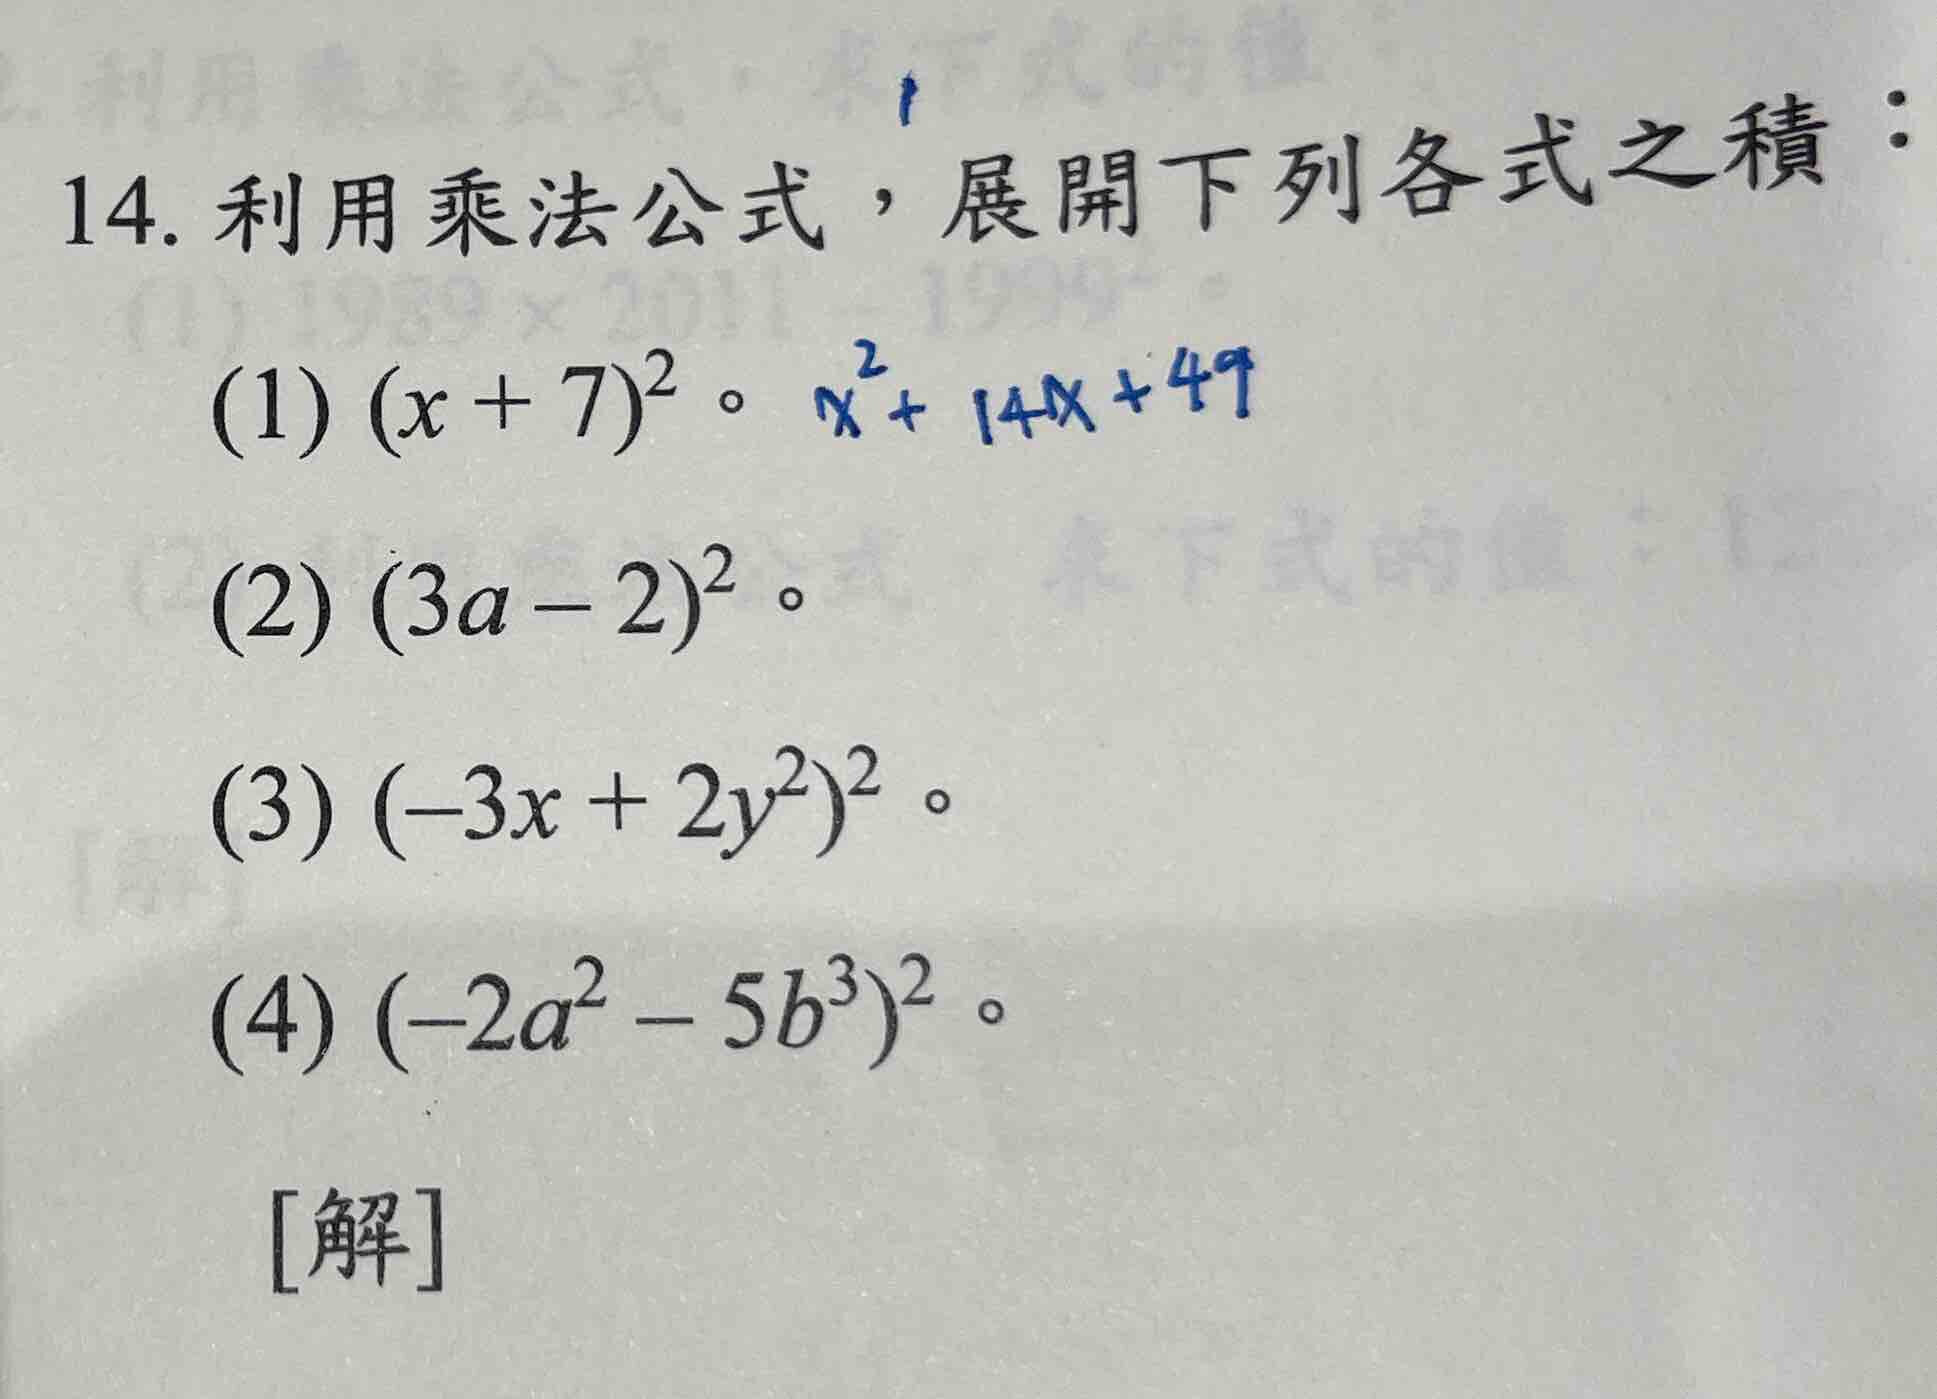 14. 利用乘法公式，展開下列各式之積：
(1) (x + 7)² 。 x² + 14x + 49
(2) (3a – 2)² 。
(3) (–3x + 2y²)² 。
(4) (–2a² – 5b³)² 。
[解]